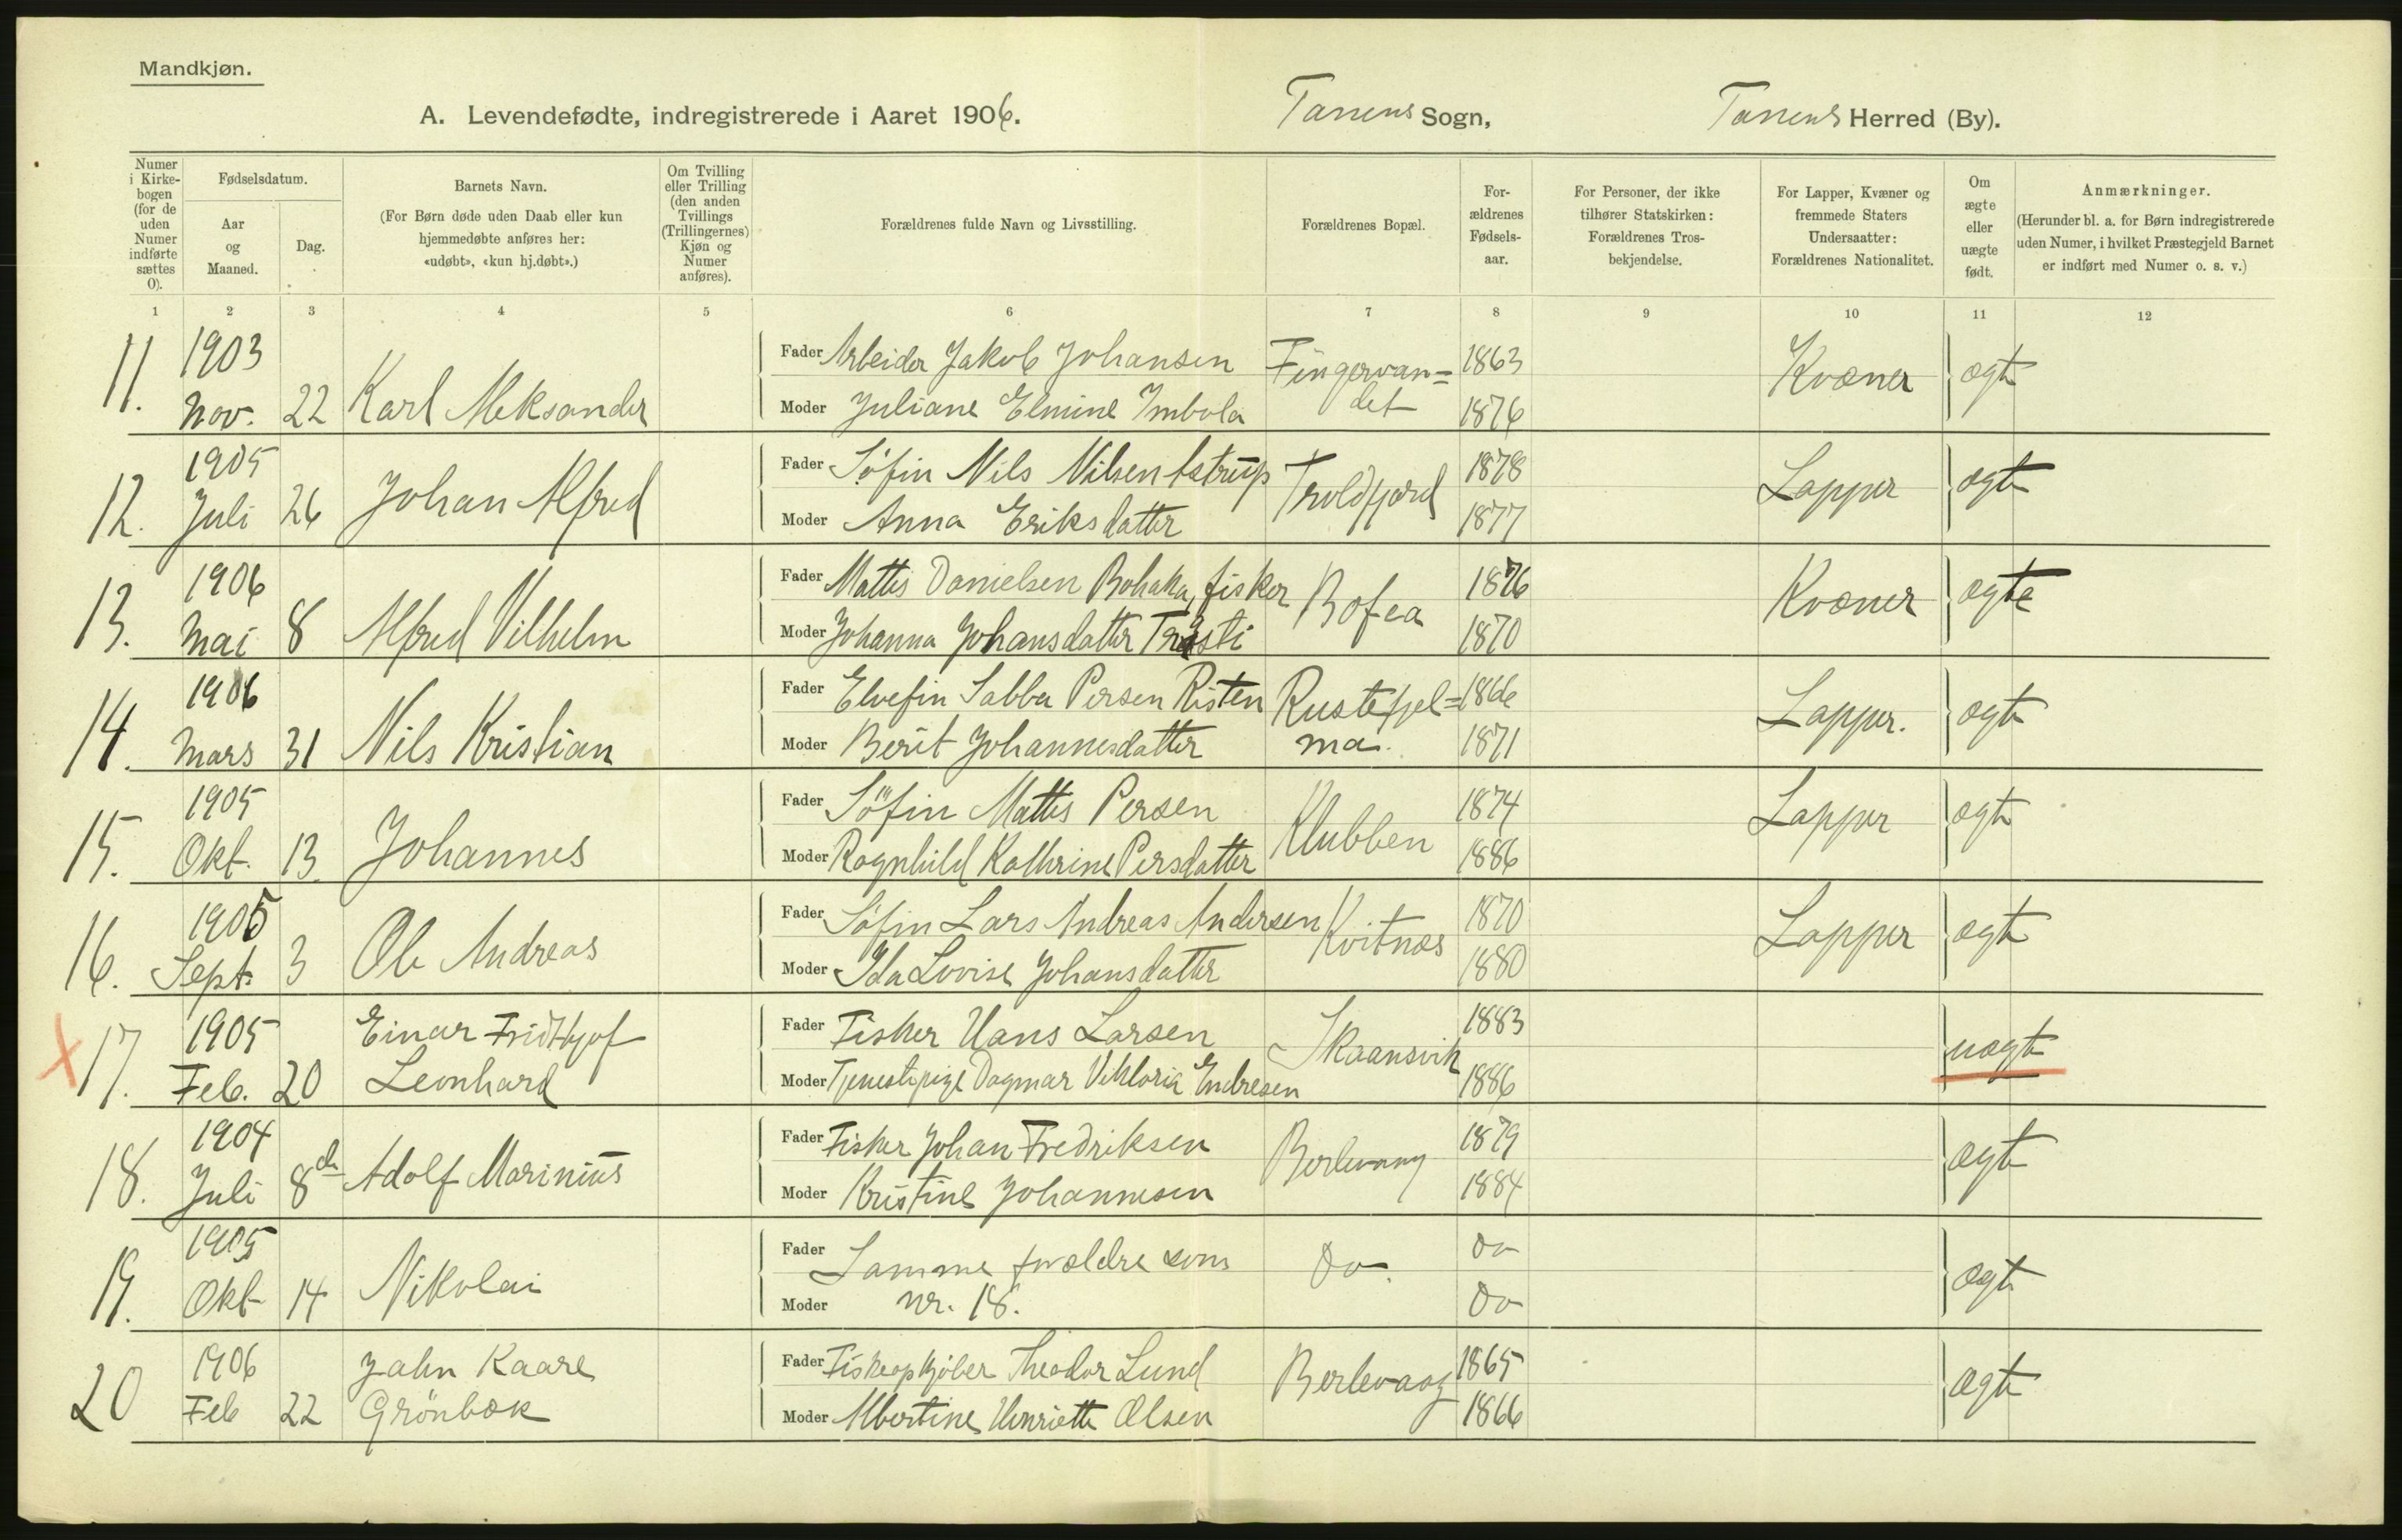 Mandkjøn.
A. Levendefødte, indregistrerede i Aaret 1906. Tanens Sogn, Tanens Herred (By).
Numer i Kirkebogen (for de uden Numer indførte sættes 0).
Fødselsdatum.
Aar og Maaned.
Dag.
Barnets Navn.
(For Børn døde uden Daab eller kun hjemmedøbte anføres her: «udøbt», «kun hj.døbt».)
Om Tvilling eller Trilling (den anden Tvillings (Trillingernes) Kjøn og Numer anføres).
Forældrenes fulde Navn og Livsstilling.
Forældrenes Bopæl.
Forældrenes Fødselsaar.
For Personer, der ikke tilhører Statskirken: Forældrenes Trosbekjendelse.
For Lapper, Kvæner og fremmede Staters Undersaatter: Forældrenes Nationalitet.
Om ægte eller uægte født.
Anmærkninger.
(Herunder bl. a. for Børn indregistrerede uden Numer, i hvilket Præstegjeld Barnet er indført med Numer o. s. v.)
1 2 3 4 5 6 7 8 9 10 11 12
11. 1903 Nov. 22 Karl Aleksander
Fader Arbeider Jakob Johansen Fingervan= 1863 Kvæner ægte
Moder Juliane Elmine Imbola det 1876
12. 1905 Juli 26 Johan Alfred
Fader Söfin Nils Nilsen Troldfjord 1878 Lapper ægte
Moder Anna Eriksdatter 1877
13. 1906 Mai 8 Alfred Vilhelm
Fader Mattis Danielsen Bohaka, fisker Bofea 1876 Kvæner ægte
Moder Johanna Johansdatter 1870
14. 1906 Mars 31 Nils Kristian
Fader Elvefin Sabba Persen Risten Rustefjel= 1866 Lapper. ægte
Moder Berit Johannesdatter ma. 1871
15. 1905 Okt. 13 Johannes
Fader Söfin Mattis Persen Klubben 1874 Lapper ægte
Moder Ragnhild Kathrine Persdatter 1886
16. 1905 Sept. 3 Ole Andreas
Fader Söfin Lars Andreas Andersen Kvitnæs 1870 Lapper ægte
Moder Ida Lovise Johansdatter 1880
X 17. 1905 Feb. 20 Einar Fridthjof Leonhard
Fader Fisker Hans Larsen Skaansvik 1883 uægte
Moder Tjenestepige Dagmar Viktoria Endresen 1886
18. 1904 Juli 8de Adolf Marinius
Fader Fisker Johan Fredriksen Berlevaag 1879 ægte
Moder Kristine Johannesen 1884
19. 1905 Okt 14 Nikolai
Fader Samme forældre som Do. Do ægte
Moder nr. 18. Do
20 1906 Feb 22 Jahn Kaare Grönbæk
Fader Fiskeopkjöber Theodor Lund Berlevaag 1865 ægte
Moder Albertine Henriette Olsen 1866